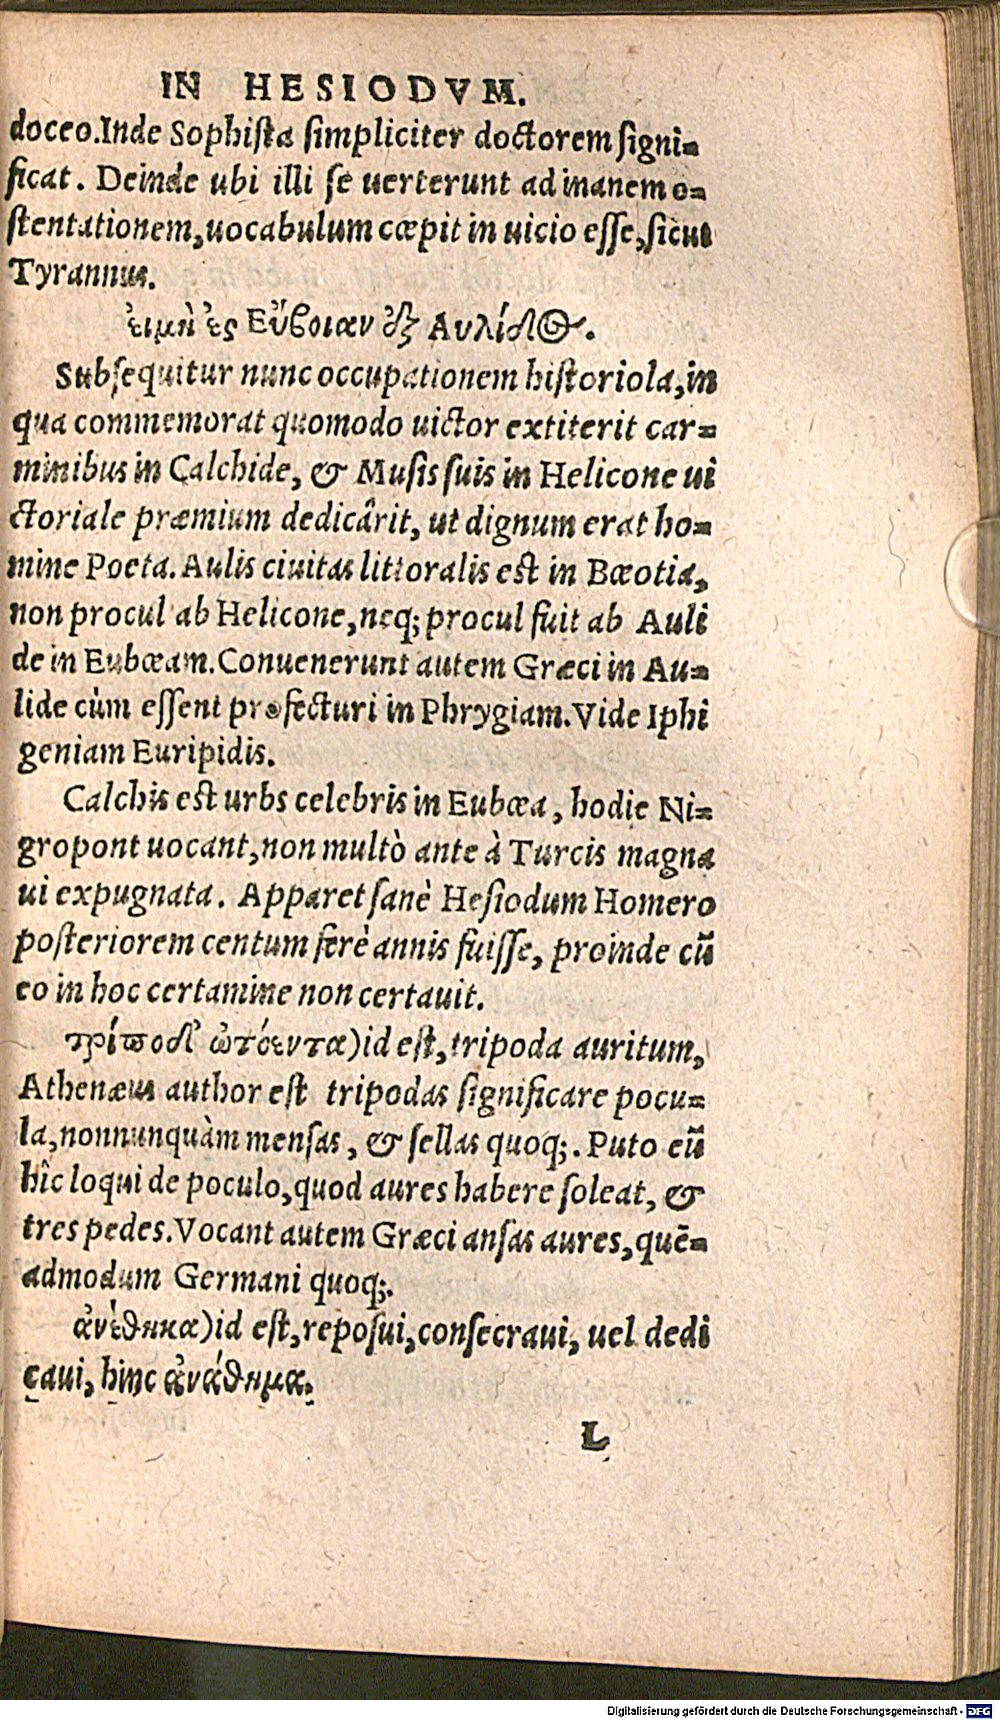 IN HESIODVM.
doceo. Inde Sophista simpliciter doctorem signi=
ficat. Deinde ubi illi se uerterunt ad inanem o=
stentationem, uocabulum cœpit in uicio esse, sicut
Tyrannus.
εἰμὴ ἐς Εὔβοιαν ἐξ Αυλίδος.
Subsequitur nunc occupationem historiola, in
qua commemorat quomodo uictor extiterit car=
minibus in Calchide, & Musis suis in Helicone ui
ctoriale præmium dedicârit, ut dignum erat ho=
mine Poeta. Aulis ciuitas littoralis est in Bœotia,
non procul ab Helicone, neq; procul fuit ab Auli
de in Eubœam. Conuenerunt autem Græci in Au=
lide cùm essent profecturi in Phrygiam. Vide Iphi
geniam Euripidis.
Calchis est urbs celebris in Eubœa, hodie Ni=
gropont uocant, non multò ante à Turcis magna
ui expugnata. Apparet sanè Hesiodum Homero
posteriorem centum ferè annis fuisse, proinde cū
eo in hoc certamine non certauit.
τρίποδ' ὠτόεντα) id est, tripoda auritum,
Athenæus author est tripodas significare pocu=
la, nonnunquàm mensas, & sellas quoq;. Puto eū
hîc loqui de poculo, quod aures habere soleat, &
tres pedes. Vocant autem Græci ansas aures, quē=
admodum Germani quoq;.
ἀνέθηκα) id est, reposui, consecraui, uel dedi
caui, hinc ἀνάθημα.
L
Digitalisierung gefördert durch die Deutsche Forschungsgemeinschaft - DFG